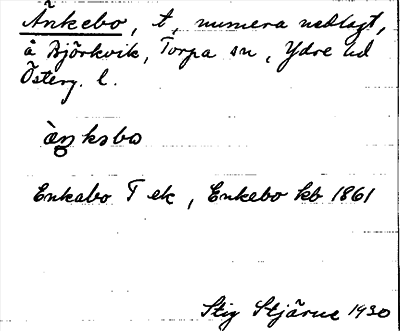 Änkebo, t, numera nedlagt,
å Björkvik, Torpa sn, Ydre hd
Österg. l.
ὰŋkəbo
Enkebo T ek, Enkebo kb 1861
Stig Stjärne 1930